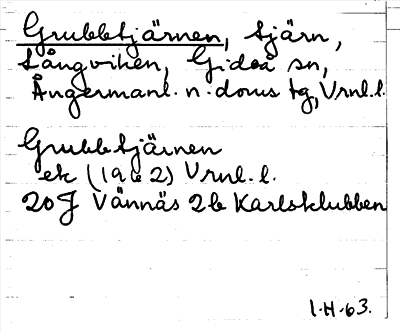 Grubbtjärnen, tjärn,
Långviken, Gideå sn,
Ångermanl. n. doms tg, Vrnl. l.
Grubbtjärnen
ek (19 2) Vrnl. l.
20 J Vännäs 2b Karlsklubben
I.H-63.